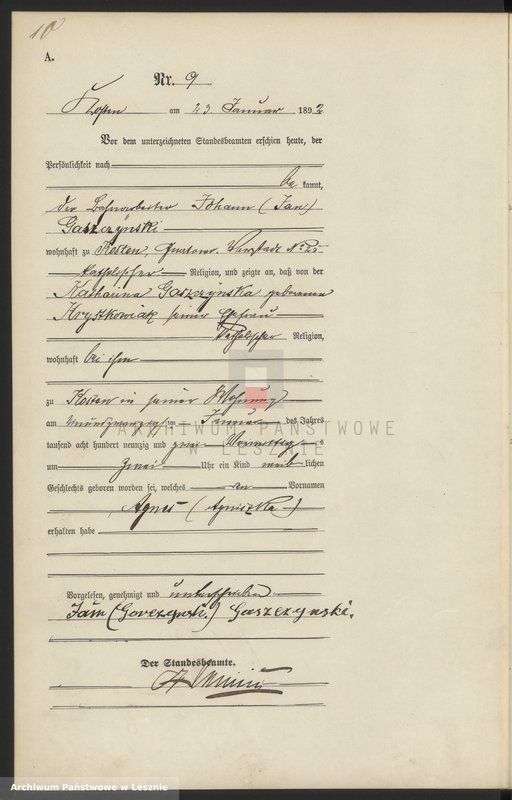 10
A.
Nr. 9
Kosten am 23 Januar 1892
Vor dem unterzeichneten Standesbeamten erschien heute, der
Persönlichkeit nach
be kannt,
der Bahnarbeiter Johann (Jan)
Gaszczynski
wohnhaft zu Kosten, Vorstadt No 25
katholischer Religion, und zeigte an, daß von der
Katharina Gaszczynska geborenen
Krystkowiak seiner Ehefrau
katholischer Religion,
wohnhaft bei ihm
zu Kosten in seiner Wohnung
am ten Januar des Jahres
tausend acht hundert neunzig und zwei Vormittag s
um zwei Uhr ein Kind weib lichen
Geschlechts geboren worden sei, welches Vornamen
Agnes (Agniszka)
erhalten habe
Vorgelesen, genehmigt und unterschrieben
Jan Gaszczynski.
Der Standesbeamte.
ARCHIWUM PAŃSTWOWE
W LESZNIE
Archiwum Państwowe w Lesznie